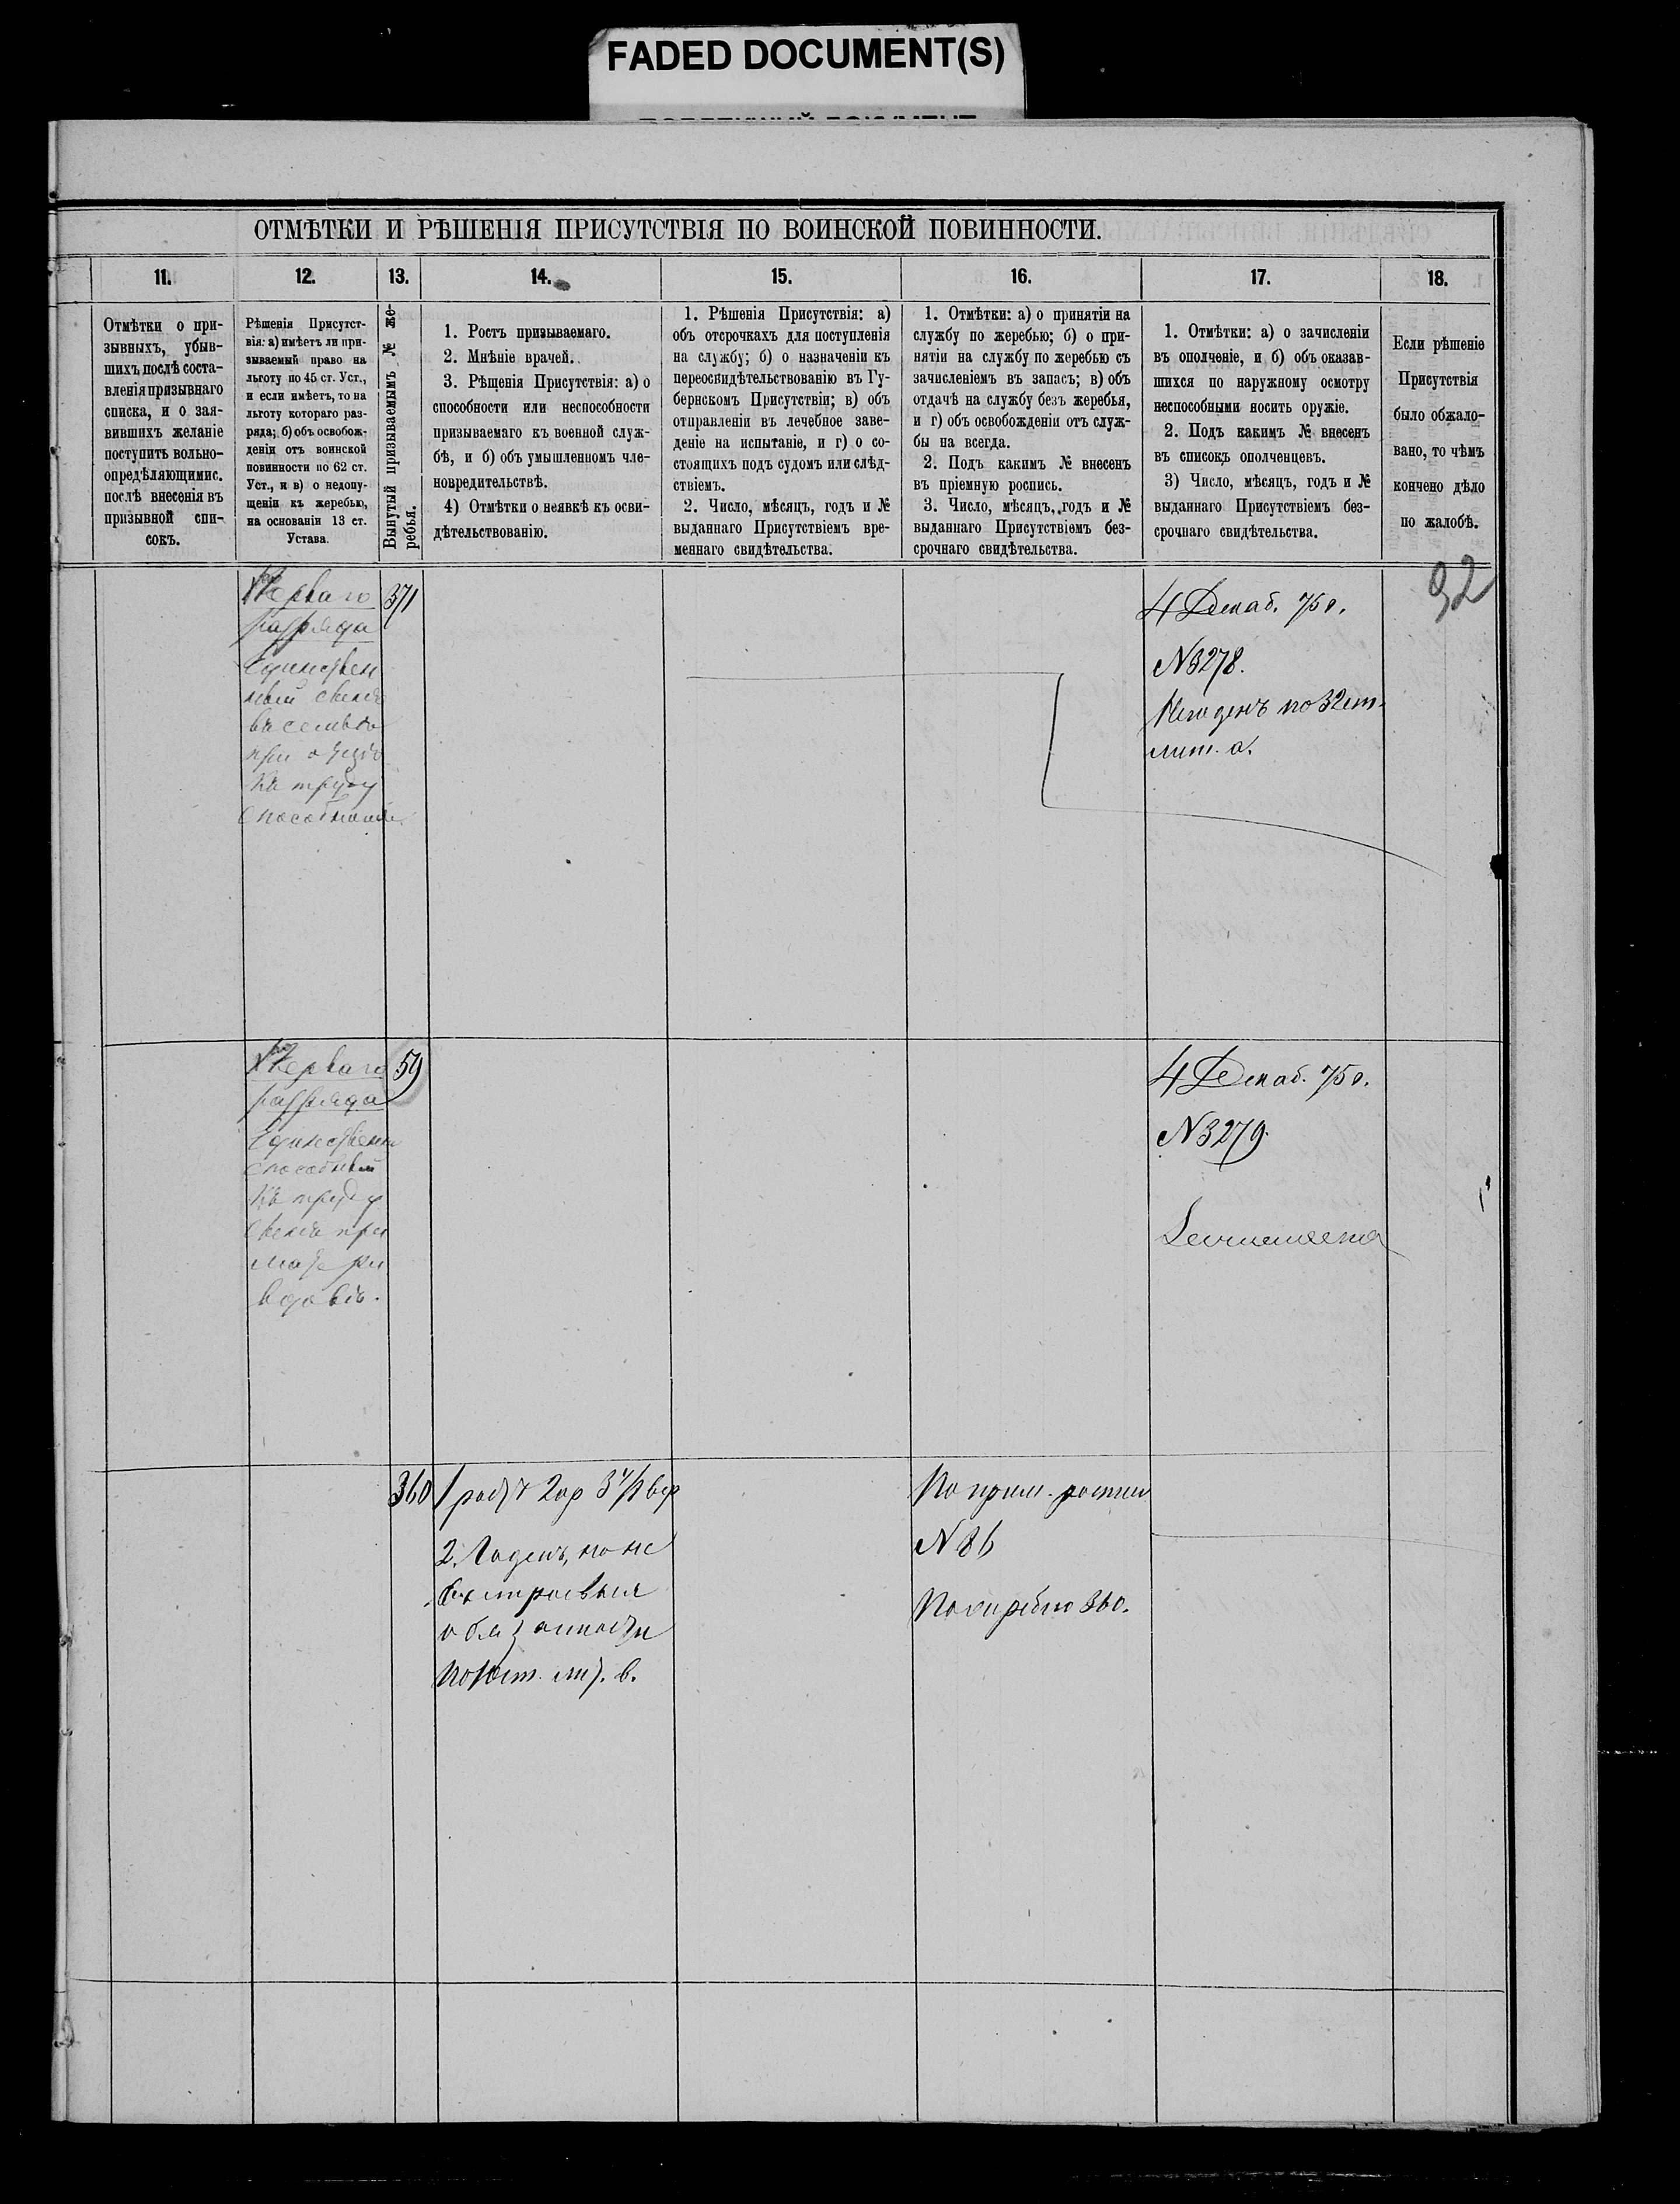 FADED DOCUMENT(S)
ОТМѢТКИ И РѢШЕНІЯ ПРИСУТСТВІЯ ПО ВОИНСКОЙ ПОВИННОСТИ.
11.
12.
13.
14.
15.
16.
17.
18.
Отмѣтки о при-
зывныхъ, убыв-
шихъ послѣ соста-
вленія призывнаго
списка, и о зая-
вившихъ желаніе
поступить вольно-
опредѣляющимис.
послѣ внесенія въ
призывной спи-
сокъ.
Рѣшенія Присутст-
вія: а) имѣетъ ли при-
зываемый право на
льготу по 45 ст. Уст.,
и если имѣетъ, то на
льготу котораго раз-
ряда; б) объ освобож-
деніи отъ воинской
повинности по 62 ст.
Уст., и в) о недопу-
щеніи къ жеребью,
на основаніи 13 ст.
Устава.
Вынутый призываемымъ № же-
ребья.
1. Ростъ призываемаго.
2. Мнѣніе врачей.
3. Рѣщенія Присутствія: а) о
способности или неспособности
призываемаго къ военной служ-
бѣ, и б) объ умышленномъ чле-
новредительствѣ.
4) Отмѣтки о неявкѣ къ осви-
дѣтельствованію.
1. Рѣшенія Присутствія: а)
объ отсрочкахъ для поступленія
на службу; б) о назначеніи къ
переосвидѣтельствованію въ Гу-
бернскомъ Присутствіи; в) объ
отправленіи въ лечебное заве-
деніе на испытаніе, и г) о со-
стоящихъ подъ судомъ или слѣд-
ствіемъ.
2. Число, мѣсяцъ, годъ и №
выданнаго Присутствіемъ вре-
меннаго свидѣтельства.
1. Отмѣтки: а) о принятіи на
службу по жеребью; б) о при-
нятіи на службу по жеребью съ
зачисленіемъ въ запасъ; в) объ
отдачѣ на службу безъ жеребья,
и г) объ освобожденіи отъ служ-
бы на всегда.
2. Подъ какимъ № внесенъ
въ пріемную роспись.
3. Число, мѣсяцъ, годъ и №
выданнаго Присутствіемъ без-
срочнаго свидѣтельства.
1. Отмѣтки: а) о зачисленіи
въ ополченіе, и б) объ оказав-
шихся по наружному осмотру
неспособными носить оружіе.
2. Подъ какимъ № внесенъ
въ списокъ ополченцевъ.
3) Число, мѣсяцъ, годъ и №
выданнаго Присутствіемъ без-
срочнаго свидѣтельства.
Если рѣшеніе
Присутствія
было обжало-
вано, то чѣмъ
кончено дѣло
по жалобѣ.
92
Перваго
разряда
Единствен
ный сынъ
въ семьѣ
при отцѣ
къ труду
способномъ
371
4 Декаб. 75 г.
N 3278.
Негоденъ по 32 ст.
лит. а.
Перваго
разряда
Единственн
способный
къ труду
сынъ при
матери
вдовѣ.
59
4 Декаб. 75 г.
N 3279.
360
1 рост 2 ар 3 4/8 вер
2. Годенъ, но не
въ строевыя
обязанности
по ст. лит. в.
По прием. росписи
N 86
По жеребью 360.